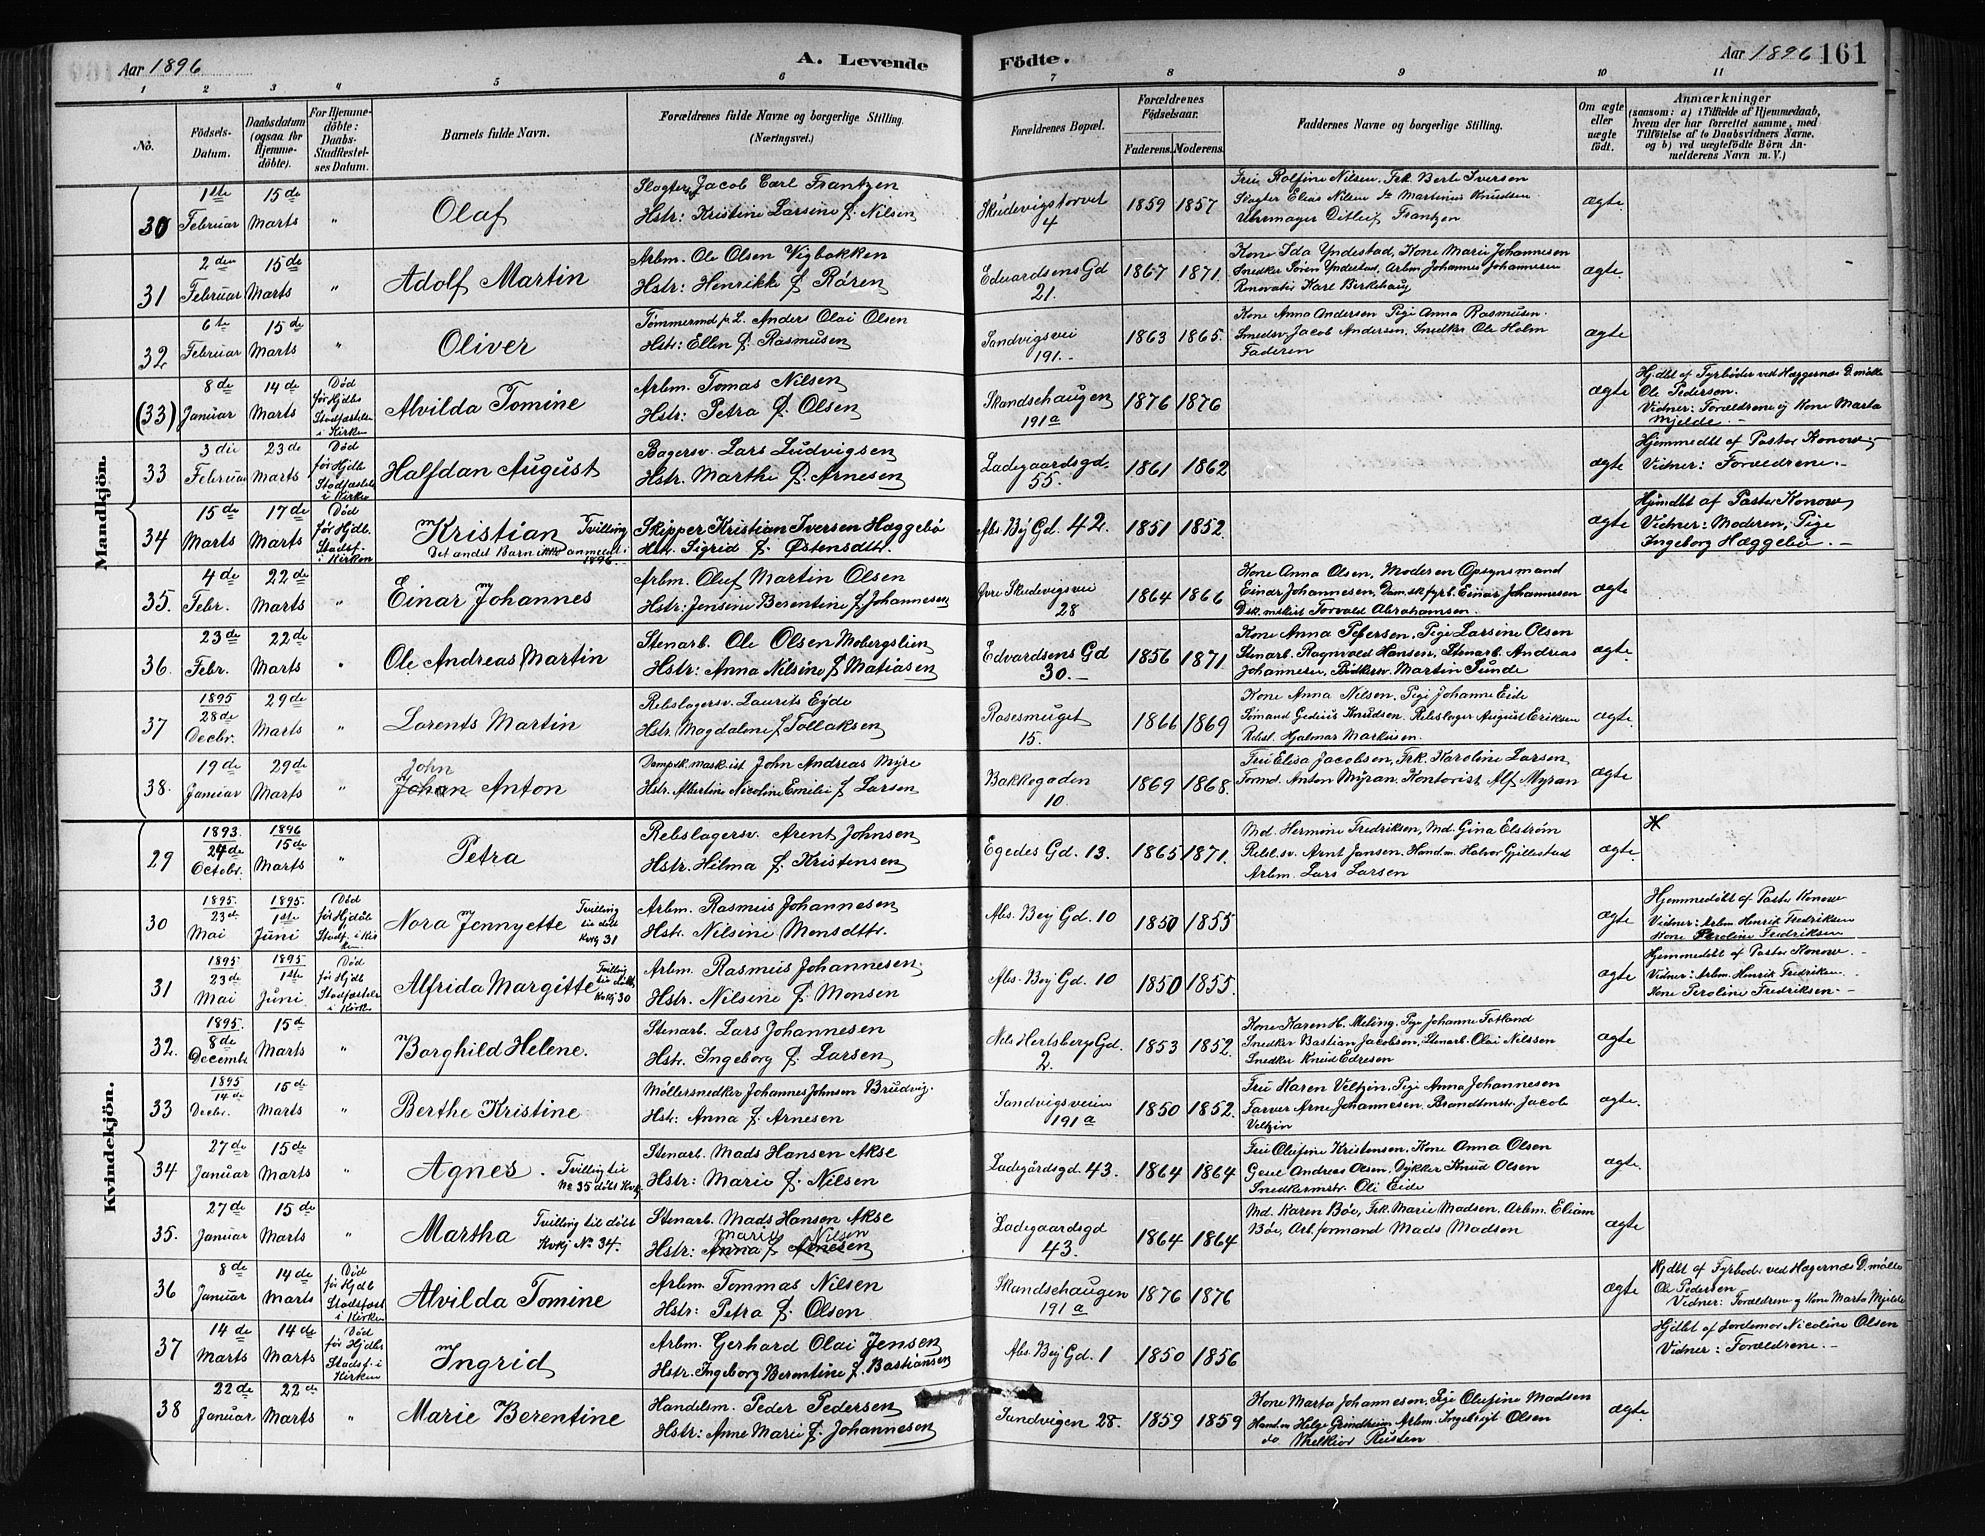 Aar 1896
A. Levende Födte.
Aar 1896 161
1 2 3 4 5 6 7 8 9 10 11
No.
Födsels-Datum.
Daabsdatum (ogsaa for Hjemmedöbte).
For Hjemmedöbte: Daabs-Stadfæstelses Datum.
Barnets fulde Navn.
Forældrenes fulde Navne og borgerlige Stilling. (Næringsvei.)
Forældrenes Bopæl.
Forældrenes Födselsaar.
Faderens. Moderens.
Faddernes Navne og borgerlige Stilling.
Om ægte eller uægte födt.
Anmærkninger
(saasom: a) i Tilfælde af Hjemmedaab, hvem der har forrettet samme, med Tilföielse af to Daabsvidners Navne, og b) ved uægtefödte Börn Anmelderens Navn m. V.)
Mandkjön.
30 1ste Februar 15de Marts " Olaf
Slagter Jacob Carl Frantzen
Hstr: Kristine Larsine f. Nilsen
Skudevigstorvet 4 1859 1857
Fru Rolfine Nilsen, Frk. Berle Iversen
Slagter Elias Nilsen do Martinus Knudsen
Uhrmager Ditlef Frantzen
ægte
31 2den Februar 15de Marts " Adolf Martin
Arbm. Ole Olsen Vigbakken
Hstr: Henrikke f. Rören
Edvardsens Gd 21. 1867 1871.
Kone Ida Yndestad, Kone Marie Johannesen
Snedker Sören Yndestad, Arbm Johannes Johannesen
Renovatör Karl Birkehaug
ægte
32 6te Februar 15de Marts " Oliver
Tømmermd p. L. Anders Olai Olsen
Hstr: Ellen f. Rasmusen
Sandvigsvei 191.- 1863 1865.
Kone Anna Andersen Pige Anna Rasmusen.
Smedsv. Jacob Andersen, Snedker Ole Holm
Faderen
ægte
(33) 8de Januar 14de Marts Död før Hjdbs Stadfæstelse i Kirken Alvilda Tomine
Arbm. Tomas Nilsen
Hstr: Petra f. Olsen
Skandsehaugen 191 a 1876 1876
ægte
Hjdbt af Fyrbøder ved Hæggernæs D. mølle
Ole Pedersen.
Vidner: Forældrene og Kone Marta
Mjelde.-
33 3die Februar 23de Marts Död før Hjdb Stadfæstels i Kirken Halfdan August
Bagersv. Lars Ludvigsen
Hstr. Marthe f. Arnesen
Ladegaardsgd. 55. 1861 1862
ægte
Hjemmedbt af Pastor Konow,-
Vidner: Forældrene.-
34 15de Marts 17de Marts Død før Hjdb. Stadsf. i Kirken Kristian Tvilling
Det andet Barn ikke anmeldt i 1896.
Skipper Kristian Iversen Hæggebø
Hstr. Sigrid f. Østensdtr.
Abs. Bey Gd. 42. 1851 1852.
ægte
Hjemdbt af Pastor Konow,
Vidner: Moderen, Pige
Ingeborg Hæggebø.-
35. 4de Febr. 22de Marts " Einar Johannes
Arbm. Oluf Martin Olsen
Hstr: Jensine Berentine f. Johannesen
Øvre Skudevigsvei 28 1864 1866
Kone Anna Olsen, Moderen Opsynsmand
Einar Johannesen, Dam.sk.fyrb. Einar Johannesen
D.sk.mskist Torvald Abrahamsen.
ægte
36. 23de Febr. 22de Marts " Ole Andreas Martin
Stenarb. Ole Olsen Mobergslien
Hstr: Anna Nilsine f. Matiasen
Edvardsens Gd 30.- 1856 1871.
Kone Anna Petersen, Pige Larsine Olsen
Stenarb. Ragnvald Hansen, Stenarb. Andreas
Johannesen, Bødkersv. Martin Sunde
ægte
37 1895 28de Decbr. 29de Marts " Lorents Martin
Rebslagersv. Laurits Eyde
Hstr. Magdalene f. Tollaksen
Rosesmuget 15. 1866 1869
Kone Anna Nilsen. Pige Johanne Eide
Sømand Gedius Knudsen. Rebslager August Eriksen
Rebsl. Hjalmar Markusen.
ægte
38. 19de Januar 29de Marts " John Anton
Dampsk.maskist John Andreas Myre
Hstr. Albertine Nicoline Emilie f. Larsen
Bakkegaden 10. 1869 1868.
Fru Elisa Jacobsen, Frk. Karoline Larsen
Formd. Anton Myran, Kontorist Alf Myran
ægte
Kvindekjön.
29 1893. 24de Octobr. 1896 15de Marts " Petra
Rebslagersv. Arent Johnsen
Hstr: Hilma f. Kristensen
Egedes Gd. 13. 1865 1871.
Md. Hermine Fredriksen, Md. Gina Elström
Rebsl.sv. Arnt Jansen. Hand.m. Halvor Gjillestad
Arbm. Lars Larsen
ægte.
30 1895. 23de Mai 1895. 1ste Juni Død før Hjdåb Stadf. i Kirken. Nora Jennyette Tvilling til døbt Kvkj 31
Arbm. Rasmus Johannesen
Hstr. Nilsine Monsdttr.
Abs. Bey Gd. 10 1850 1855
ægte
Hjemmedøbt af Pastor Konow
Vidner: Arbm Henrik Fredriksen
Kone Peroline Fredriksen
31 1895 23de Mai 1895 1ste Juni Død før Hjdb Stadfæstelse i Kirke Alfrida Margitte Tvilling til døbt Kvkj 30
Arbm. Rasmus Johannesen.
Hstr. Nilsine f. Monsen
Abs. Bey Gd. 10 1850 1855.
ægte
Hjemmedöbt af Pastor Konow.-
Vidner: Arbm. Henrik Fredriksen.
Kone Peroline Fredriksen.-
32. 1895. 8de Decembr 15de Marts " Borghild Helene.
Stenarb. Lars Johannesen
Hstr. Ingeborg f. Larsen
Nils Hertsberg Gd. 2. 1853 1852.
Kone Karen H. Meling, Pige Johanne Fotland
Snedker Bastian Jacobsen, Stenarb. Olai Nilssen
Snedker Knud Edresen
ægte
33 1895 14de Decbr. 15de Marts " Berthe Kristine
Møllersnedker Johannes Johnsen Brudvig.
Hstr: Anna f. Arnesen
Sandvigsveien 191 a 1850 1852.
Fru Karen Veltzin, Pige Anna Johannesen
Farver Arne Johannesen. Brandtmstr. Jacob
Veltzin
ægte.
34 27de Januar 15de Marts " Agnes. Tvilling til No 35 döbt Kvkj
Stenarb. Mads Hansen Akse
Hstr: Marie f. Nilsen
Ladegårdsgd. 43. 1864 1864
Fru Olufine Kristensen, Kone Anna Olsen
Andreas Olsen, Dykker Knud Olsen
Snedkermstr. Ole Eide
ægte.
35. 27de Januar 15de Marts " Martha Tvilling til døbt Kvkj No. 34.
Stenarb. Mads Hansen Akse
Marie Nilsen
Hstr: Anna f. Arnesen
Ladegaardsgd 43. 1864 1864
Md. Karen Bøe, Frk. Marie Madsen, Arbm. Eliam
Bøe, Arb.formand Mads Madsen
ægte
36 8de Januar 14de Marts Død før Hjdb Stadsfæst i Kirken Alvilda Tomine
Arbm. Tommas Nilsen
Hstr: Petra f. Olsen
Skandsehaugen 191 a 1876 1876
ægte
Hjdbt af Fyrbød. ved Hægernæs D. mølle
Ole Pedersen
Vidner: Forældrene og Kone Marta Mjelde
37 14de Marts 14de Marts Død før Hjdbs Stadsf. i Kirken Ingrid
Arbm. Gerhard Olai Jensen
Hstr. Ingeborg Berentine f. Bastiansen
Abs. Bey Gd. 1 1850 1856
Hjdbt af Jordemor Nicoline Olsen
Vidner: Forældrene.-
38 22de Januar 22de Marts " Marie Berentine
Handelsm. Peder Pedersen
Hstr: Anne Marie f. Johannesen
Sandvigen 28. 1859 1859
Kone Marta Johannesen, Pige Olufine Madsen
Hand.m Helge Grindheim Arbm. Ingebrigt Olsen
do Melkior Rusten
ægte.